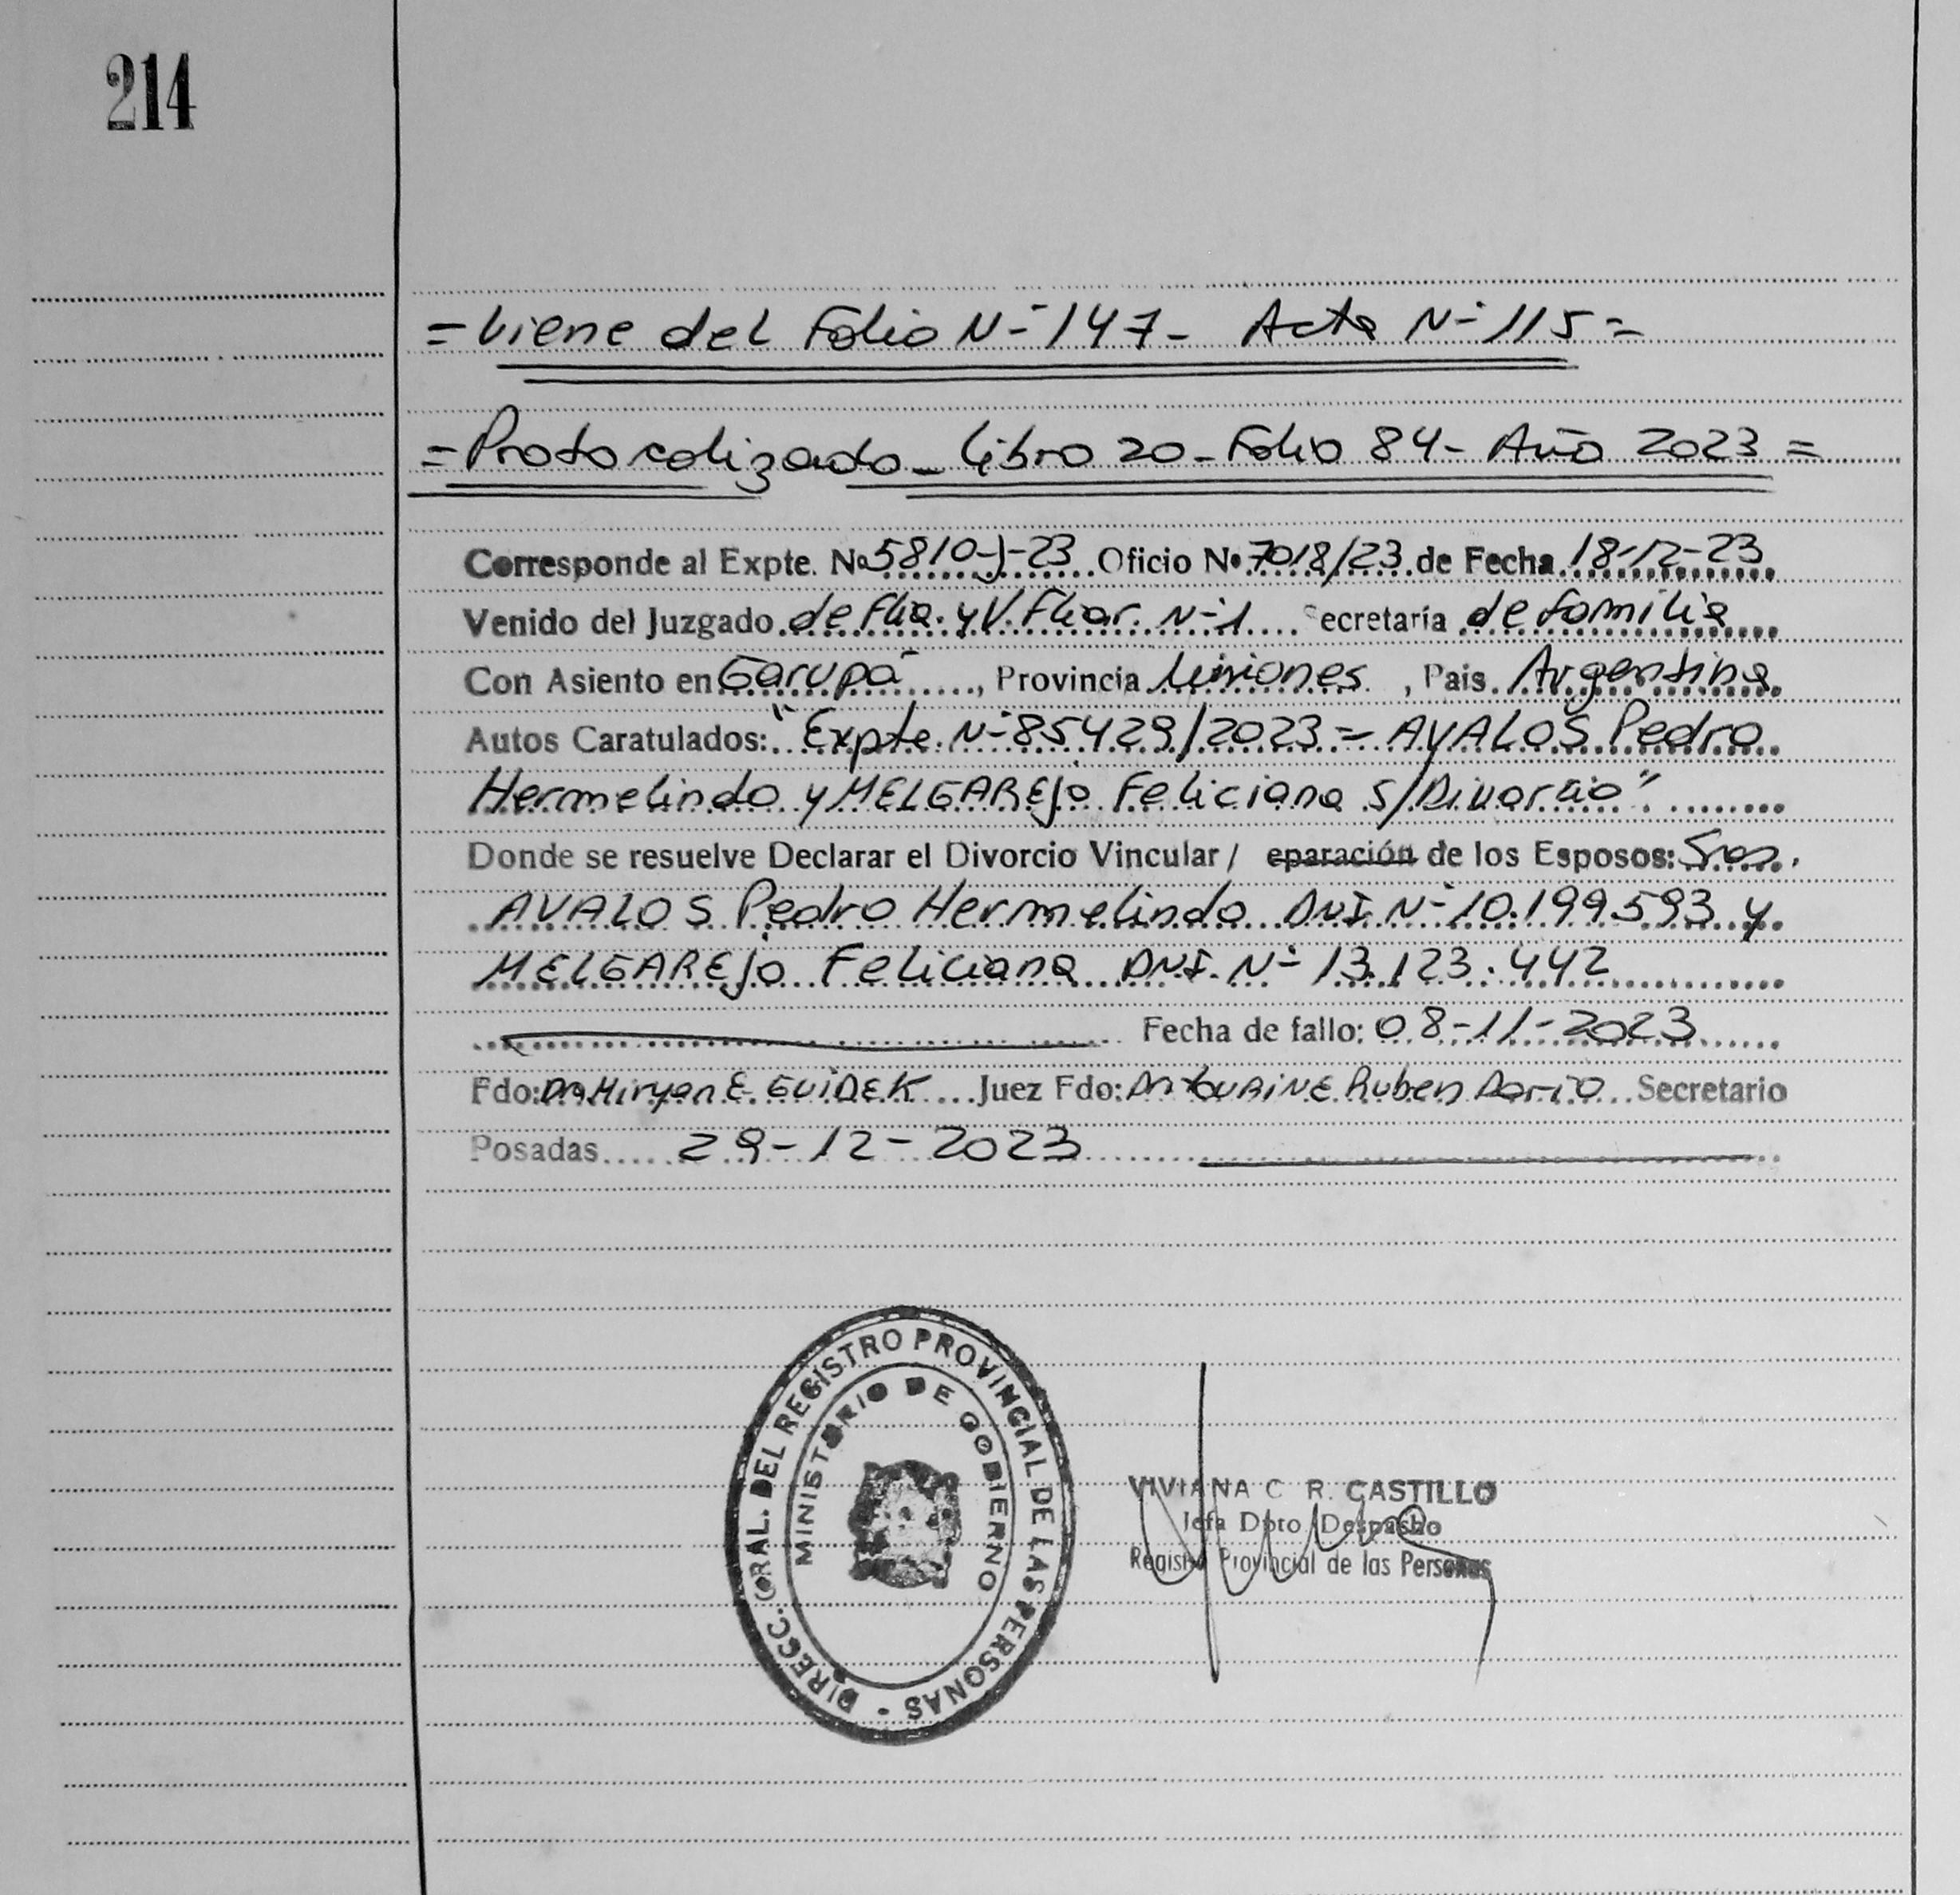 214
= Viene del Folio Nº 147 - Acta Nº 115 =
= Protocolizado - Libro 20 - Folio 84 - Año 2023 =
Corresponde al Expte. Nº 5810-J-23 Oficio Nº 7018/23 de Fecha 18-12-23
Venido del Juzgado de Flia. y V. Fliar. Nº 1 ecretaría de familia
Con Asiento en Garupá, Provincia Misiones, Pais Argentina
Autos Caratulados: "Expte. Nº 85429/2023 - AVALOS Pedro
Hermelindo y MELGAREJO Feliciana S/Divorcio"
Donde se resuelve Declarar el Divorcio Vincular / eparación de los Esposos: Sres.
AVALOS Pedro Hermelindo DNI. Nº 10.199.593 y
MELGAREJO Feliciana DNI. Nº 13.123.442
Fecha de fallo: 08-11-2023
Fdo: Dra Miryan E. GUIDEK Juez Fdo: Dr. TOURINE Ruben Dario Secretario
Posadas 29-12-2023
DIRECC. GRAL. DEL REGISTRO PROVINCIAL DE LAS PERSONAS -
MINISTERIO DE GOBIERNO
VIVIANA C R. CASTILLO
Jefa Dpto Despacho
Registro Provincial de las Personas